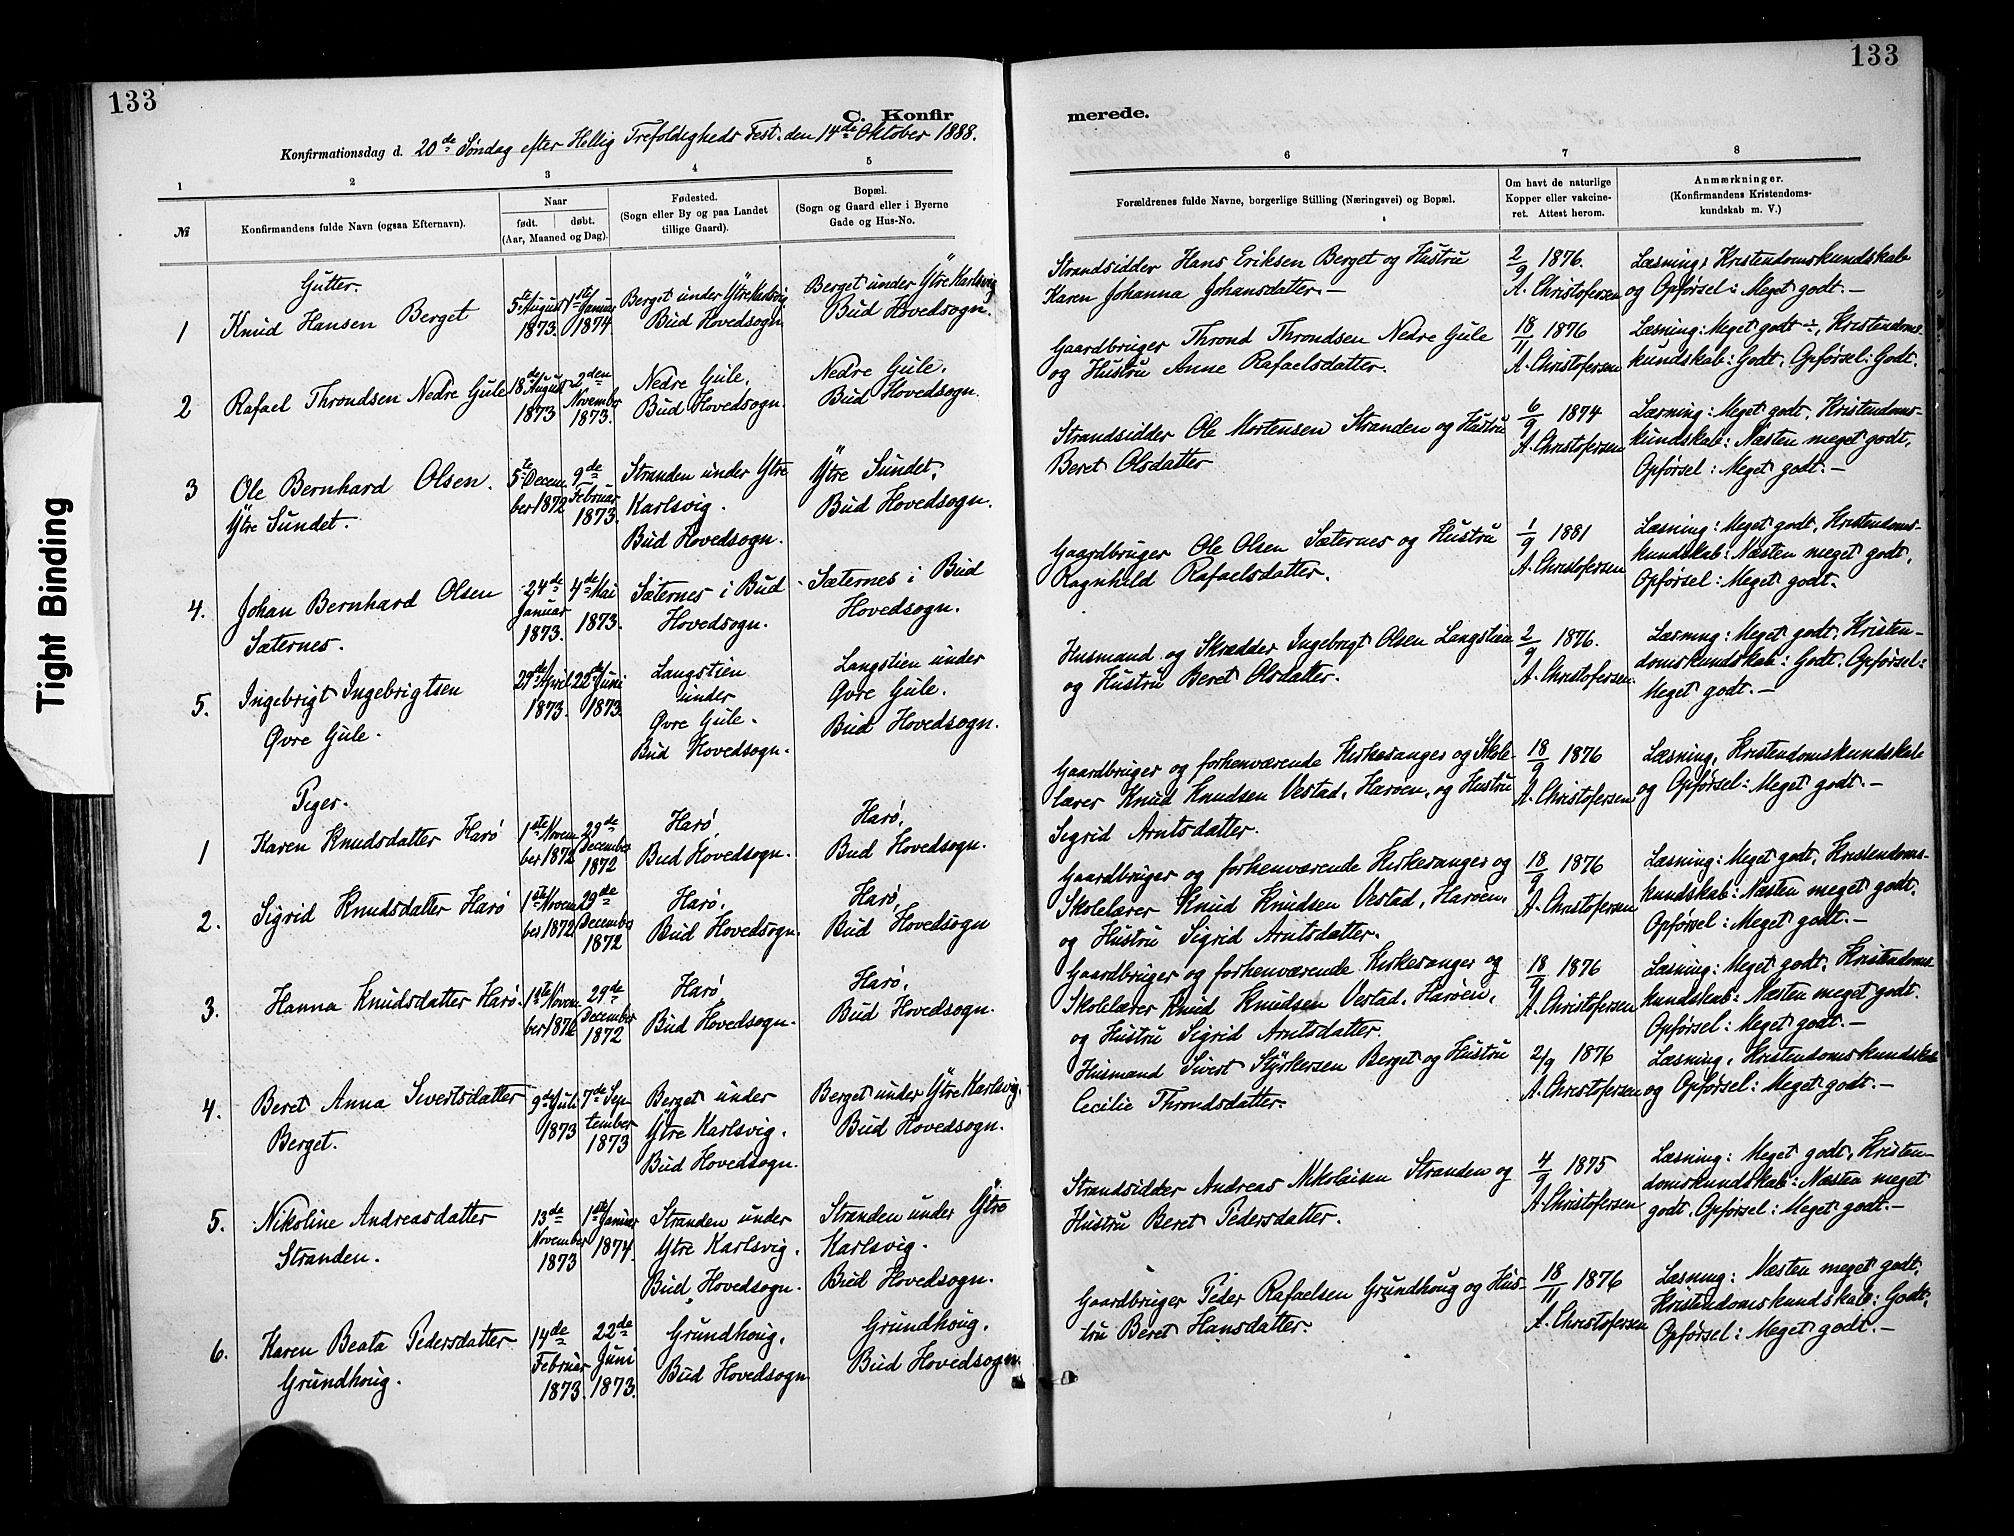 133
133
C. Konfir
merede.
Konfirmationsdag d. 20de Søndag efter Hellig Trefoldigheds Fest. den 14de Oktober 1888.
1 2 3 4 5
№
Konfirmandens fulde Navn (ogsaa Efternavn).
Naar
født. døbt.
(Aar, Maaned og Dag).
Fødested.
(Sogn eller By og paa Landet
tillige Gaard).
Bopæl.
(Sogn og Gaard eller i Byerne
Gade og Hus-No.
Gutter.
1 Knud Hansen Berget
5te August
1873.
1ste Januar
1874
Berget under Ytre Karlsvig
Bud Hovedsogn
Berget under Ytre Karlsvig
Bud Hovedsogn.
2 Rafael Throndsen Nedre Gule
18de August
1873
2den
November
1873.
Nedre Gule,
Bud Hovedsogn.
Nedre Gule,
Bud Hovedsogn.
3 Ole Bernhard Olsen.
Ytre Sundet.
5te Decem
ber 1872
9de
Februar
1873.
Stranden under Ytre
Karlsvig.
Bud Hovedsogn.
Ytre Sundet,
Bud Hovedsogn.
4. Johan Bernhard Olsen
Sæternes.
24de
Januar
1873.
4de Mai
1873.
Sæternes i Bud
Hovedsogn.
Sæternes i Bud
Hovedsogn.
5. Ingebrigt Ingebrigtsen
Øvre Gule.
29de April
1873.
22de Juni
1873.
Langstien
under
Øvre Gule.
Bud Hovedsogn.
Langstien under
Øvre Gule.
Bud Hovedsogn.
Piger.
1 Karen Knudsdatter Harø
1ste Novem
ber 1872
29de
December
1872
Harø,
Bud Hovedsogn.
Harø,
Bud Hovedsogn.
2. Sigrid Knudsdatter Harø
1ste Novem
ber 1872
29de
December
1872
Harø,
Bud Hovedsogn.
Harø,
Bud Hovedsogn
3. Hanna Knudsdatter Harø.
1ste Novem
ber 1872
29de
December
1872
Harø,
Bud Hovedsogn.
Harø,
Bud Hovedsogn.
4. Beret Anna Sivertsdatter
Berget.
9de Juli
1873
7de Sep-
tember
1873
Berget under
Ytre Karlsvig.
Bud Hovedsogn.
Berget under Ytre Karlsvig.
Bud Hovedsogn.
5. Nikoline Andreasdatter
Stranden.
13de
November
1873
1ste Januar
1874.
Stranden under
Ytre Karlsvig.
Bud Hovedsogn.
Stranden under Ytre
Karlsvig.
Bud Hovedsogn.
6. Karen Beata Pedersdatter
Grundhoug.
14de
Februar
1873.
22de
Juni
1873.
Grundhoug,
Bud Hovedsogn
Grundhoug.
Bud Hovedsogn.
6 7 8
Forældrenes fulde Navne, borgerlige Stilling (Næringsvei) og Bopæl.
Om havt de naturlige
Kopper eller vakcine-
ret. Attest herom.
Anmærkninger.
(Konfirmandens Kristendoms-
kundskab m. V.)
Strandsidder Hans Eriksen Berget og Hustru
Karen Johanna Johansdatter.—
2/9 1876.
A. Christofersen
Læsning, Kristendomskundskab
og Opførsel: Meget godt.—
Gaardbruger Thrond Throndsen Nedre Gule
og Hustru Anne Rafaelsdatter.
18/11 1876
A. Christofersen
Læsning: Meget godt ÷, Kristendoms-
kundskab: Godt, Opførsel: Godt.
Strandsidder Ole Mortensen Stranden og Hustru
Beret Olsdatter
6/9 1874
A. Christofersen
Læsning: Meget godt, Kristendoms-
kundskab: Næsten meget godt,
Opførsel: Meget godt.—
Gaardbruger Ole Olsen Sæternes og Hustru
Ragnhild Rafaelsdatter.
1/9 1881
A. Christofersen
Læsning: Meget godt, Kristendoms-
kundskab: Næsten meget godt,
Opførsel: Meget godt.
Husmand og Skrædder Ingebrigt Olsen Langstien
og Hustru Beret Olsdatter.
2/9 1876.
A. Christofersen.
Læsning: Meget godt, Kristen-
domskundskab: Godt. Opførsel:
Meget godt.—
Gaardbruger og forhenværende Kirkesanger og Skole-
lærer Knud Knudsen Vestad, Harøen, og Hustru
Sigrid Arntsdatter.
18/9 1876
A. Christofersen
Læsning, Kristendomskundskab
og Opførsel: Meget godt.—
Gaardbruger og forhenværende Kirkesanger og
Skolelærer Knud Knudsen Vestad, Harøen,
og Hustru Sigrid Arntsdatter.
18/9 1876
A. Christofersen
Læsning: Meget godt, Kristendoms-
kundskab: Næsten meget godt.
Opførsel: Meget godt.—
Gaardbruger og forhenværende Kirkesanger og
Skolelærer Knud Knudsen Vestad, Harøen,
og Hustru Sigrid Arntsdatter.
18/9 1876
A. Christofersen
Læsning: Meget godt, Kristendoms
kundskab: Næsten meget godt.
Opførsel: Meget godt.—
Husmand Sivert Styrkersen Berget og Hustru
Cecilie Throndsdatter.
2/9 1876
A. Christofersen
Læsning, Kristendomskundskab
og Opførsel: Meget godt.—
Strandsidder Andreas Nikolaisen Stranden og
Hustru Beret Pedersdatter.
4/9 1875
A. Christofersen
Læsning: Meget godt, Kristen-
domskundskab: Næsten meget
godt. Opførsel: Meget godt.—
Gaardbruger Peder Rafaelsen Grundhoug og Hus-
tru Beret Hansdatter.
18/11 1876
A. Christofersen
Læsning: Næsten meget godt,
Kristendomskundskab: Godt,
Opførsel: Meget godt.—
Tight Binding